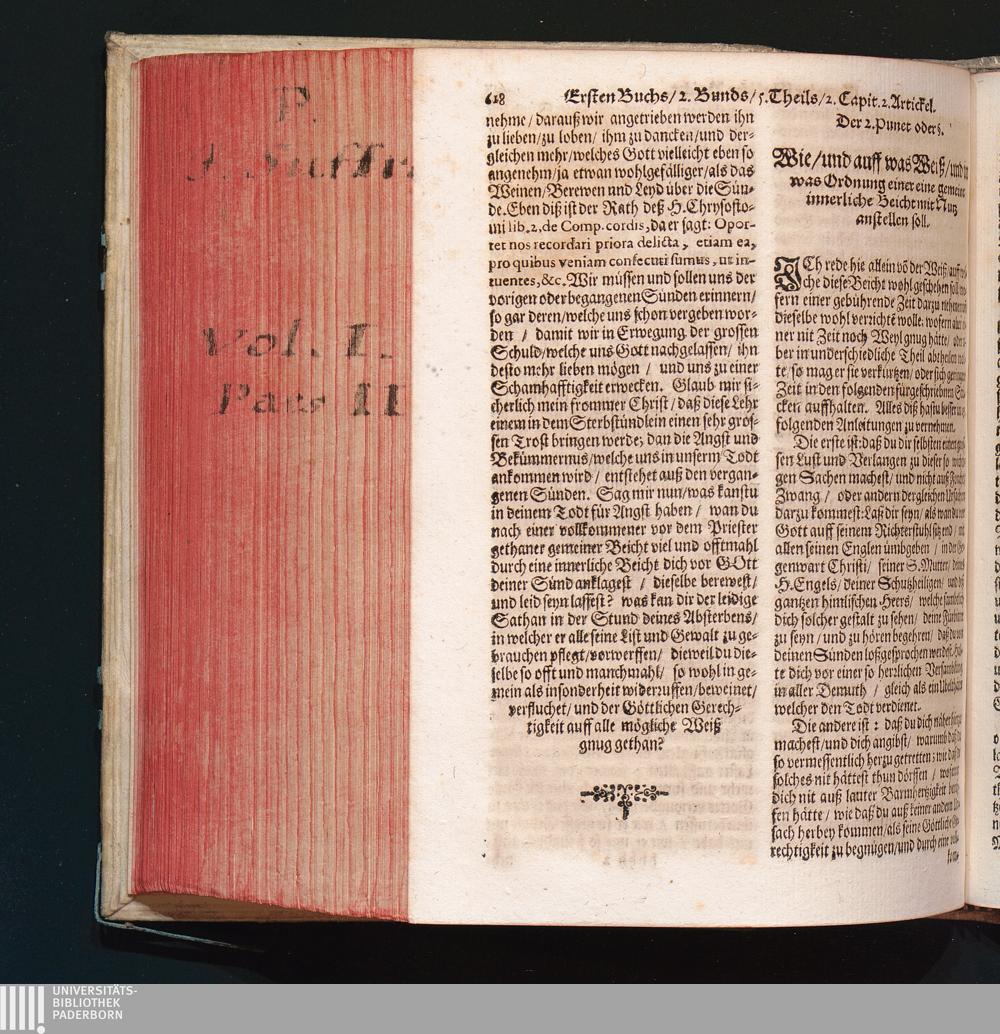 P.
J. Suffr
Vol. I.
Pars II
618 Ersten Buchs/ 2. Bunds/ 5. Theils/ 2. Capit. 2. Artickel.
nehme/ darauß wir angetrieben werden ihn
zu lieben/ zu loben/ ihm zu dancken/ und der-
gleichen mehr/ welches Gott vielleicht eben so
angenehm/ ja etwan wohlgefälliger/ als das
Weinen/ Berewen und Leyd über die Sün-
de. Eben diß ist der Rath deß H. Chrysosto-
mi lib. 2. de Comp. cordis, da er sagt: Opor-
tet nos recordari priora delicta, etiam ea,
pro quibus veniam consecuti sumus, ut in-
tuentes, &c. Wir müssen und sollen uns der
vorigen oder begangenen Sünden erinnern/
so gar deren/ welche uns schon vergeben wor-
den / damit wir in Erwegung der grossen
Schuld/ welche uns Gott nachgelassen/ ihn
desto mehr lieben mögen / und uns zu einer
Schamhafftigkeit erwecken. Glaub mir si-
cherlich mein frommer Christ/ daß diese Lehr
einem in dem Sterbstündlein einen sehr gros-
sen Trost bringen werde; dan die Angst und
Bekümmernus/ welche uns in unserm Todt
ankommen wird/ entstehet auß den vergan-
genen Sünden. Sag mir nun/ was kanstu
in deinem Todt für Angst haben/ wan du
nach einer vollkommener vor dem Priester
gethaner gemeiner Beicht viel und offtmahl
durch eine innerliche Beicht dich vor GOtt
deiner Sünd anklagest / dieselbe berewest/
und leid seyn lassest? was kan dir der leidige
Sathan in der Stund deines Absterbens/
in welcher er alle seine List und Gewalt zu ge-
brauchen pflegt/ vorwerffen/ dieweil du die-
selbe so offt und manchmahl/ so wohl in ge-
mein als insonderheit widerruffen/ beweinet/
verfluchet/ und der Göttlichen Gerech-
tigkeit auff alle mögliche Weiß
gnug gethan?
Der 2. Punct oder §.
Wie/ und auff was Weiß/ und in
was Ordnung einer eine gemeine
innerliche Beicht mit Nutz
anstellen soll.
ICh rede hie allein võ der Weiß/ auff wel-
che diese Beicht wohl geschehen soll wo-
fern einer gebührende Zeit darzu nehmen
dieselbe wohl verzichtẽ wolle: wofern aber
ner nit Zeit noch Weyl gnug hätte/ oder
ber in underschiedliche Theil abtheilen
te/ so mag er sie verkürtzen/ oder sich
Zeit in den folgenden fürgeschriebnen
cken auffhalten. Alles diß hastu besser
folgenden Anleitungen zu vernehmen.
Die erste ist: daß du dir selbsten einen gros-
sen Lust und Verlangen zu dieser so wichti-
gen Sachen machest/ und nicht auß
Zwang / oder andern dergleichen Ursachen
darzu kommest: Laß dir seyn/ als wan du vor
Gott auff seinem Richterstuhl sitzend/ mit
allen seinen Englen ümbgeben / in der Ge-
genwart Christi/ seiner S. Mutter/ deines
H. Engels/ deiner Schutzheiligen/ und deß
gantzen himlischen Heers/ welche sämbtlich
dich solcher gestalt zu sehen/ deine Fürbitter
zu seyn/ und zu hören begehren/ daß du von
deinen Sünden loßgesprochen werdest. Hal-
te dich vor einer so herzlichen Versamblung
in aller Demuth / gleich als ein Ubelthäter
welcher den Todt verdienet.
Die andere ist: daß du dich näher hinzu
machest/ und dich angibst/ warumb daß du
so vermessentlich herzu getretten; wie daß du
solches nit hättest thun dörffen / wofern
dich nit auß lauter Barmhertzigkeit
fen hätte/ wie daß du auß keiner andern Ur-
sach herbey kommen/ als seine Göttliche Ge-
rechtigkeit zu begnügen/ und durch eine voll-
kom-
UNIVERSITÄTS-
BIBLIOTHEK
PADERBORN